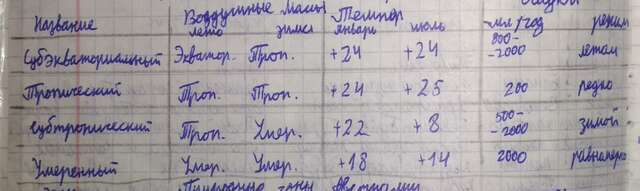 Воздушные массы Темпер осадки
Название лето зима январь июль мл/год режим
Субэкваториальный Экватор. Троп. +24 +24 800-2000 летом
Тропический Троп. Троп. +24 +25 200 редко
Субтропический Троп. Умер. +22 +8 500-2000 зимой
Умеренный Умер. Умер. +18 +14 2000 равномерно
Природные зоны Австралии